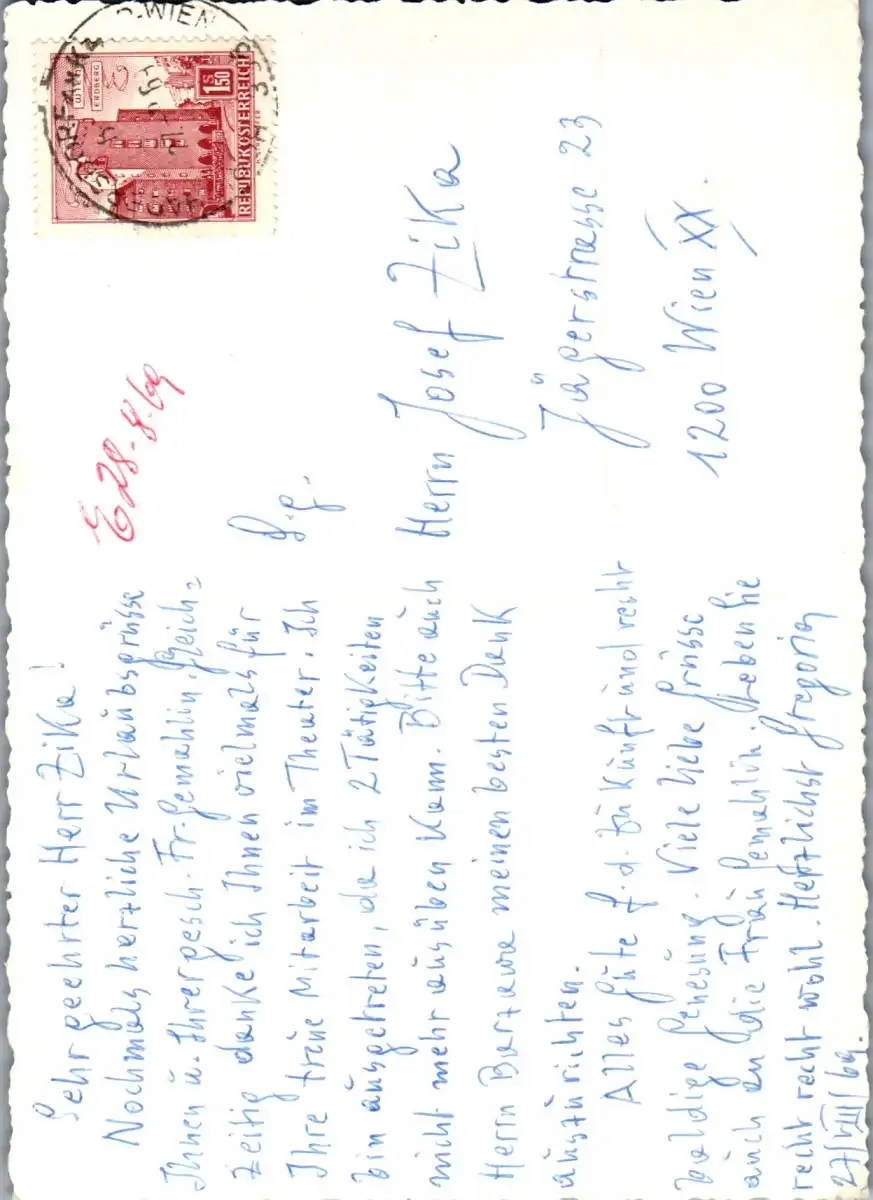 Sehr geehrter Herr Zika!
Nochmals herzliche Urlaubsgrüsse
Ihnen u. Ihrer gesch. Fr. Gemahlin. Gleich=
zeitig danke ich Ihnen vielmals für
Ihre treue Mitarbeit im Theater. Ich
bin ausgetreten, da ich 2 Tätigkeiten
nicht mehr ausüben kann. Bitte auch
Herrn meinen besten Dank
auszurichten.
Alles Gute f. d. Zukunft und recht
baldige Genesung. Viele liebe Grüsse
auch an die Frau Gemahlin. Leben Sie
recht recht wohl. Herzlichst Gregorig
27/VIII/69.
E 28-8-69
S. g.
Herrn Josef Zika
Jägerstrasse 23
1200 Wien XX.
WIEN
ERDBERG
S 1.50
REPUBLIK ÖSTERREICH
WIEN